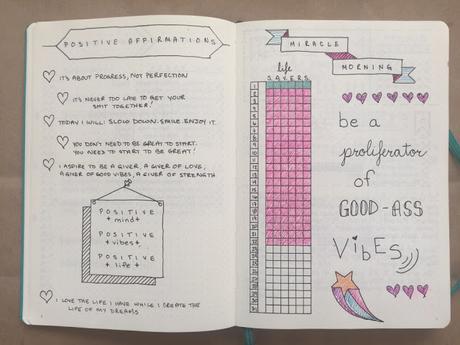 POSITIVE AFFIRMATIONS
IT'S ABOUT PROGRESS, NOT PERFECTION
IT'S NEVER TOO LATE TO GET YOUR
SHIT TOGETHER!
TODAY I WILL: SLOW DOWN. SMILE. ENJOY IT.
YOU DON'T NEED TO BE GREAT TO START.
YOU NEED TO START TO BE GREAT!
I ASPIRE TO BE A GIVER. A GIVER OF LOVE,
A GIVER OF GOOD VIBES, A GIVER OF STRENGTH
POSITIVE
+ mind +
POSITIVE
+ vibes +
POSITIVE
+ life +
I LOVE THE LIFE I HAVE WHILE I CREATE THE
LIFE OF MY DREAMS
MIRACLE
MORNING
life
S.A.V.E.R.S
be a
proliferator
of
GOOD-ASS
VIBES